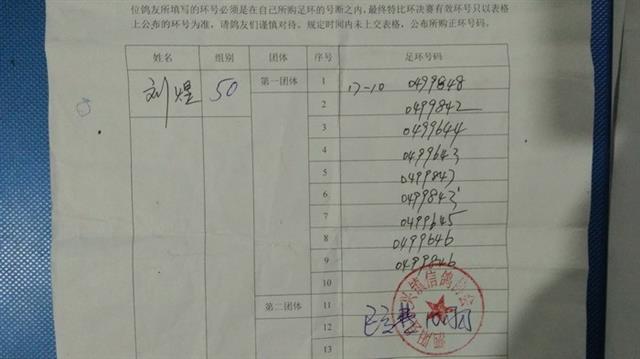 位鸽友所填写的环号必须是在自己所购足环的号断之内。最终特比环决赛有效环号只以表格
上公布的环号为准，请鸽友们谨慎对待。规定时间内未上交表格，公布所购正环号码。
姓名 组别 团体 序号 足环号码
刘煌 50 第一团体 1 17-10 0499848
2 0499842
3 0499644
4 0499643
5 0499847
6 0499843
7 0499645
8 0499646
9 0499846
10
第二团体 11
12
13